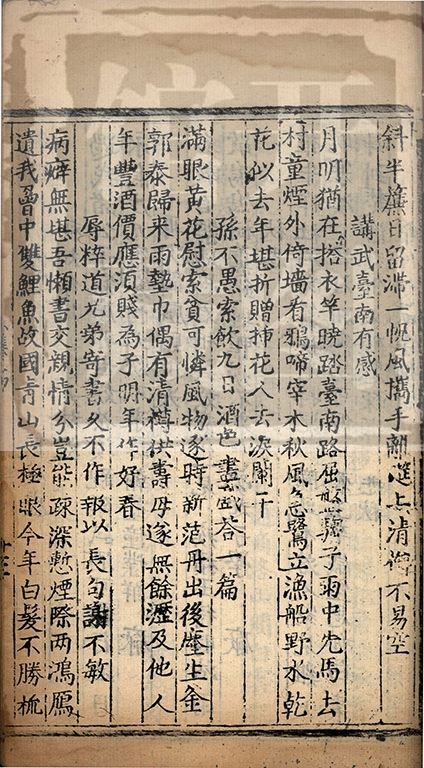 斜半簾日留滯一帆風攜手離筵上清樽不易空
講武臺南有感
月明猶在搭衣竿曉踏臺南路屈盤子雨中先馬去
村童煙外倚墻看鴉啼宰木秋風急鷺立漁船野水乾
花似去年堪折贈揷花人去淚闌干
孫不愚索飲九日酒已盡戲答一篇
滿眼黃花慰索貧可憐風物逐時新范丹出後塵生釜
郭泰歸來雨墊巾偶有清樽供壽母遂無餘瀝及他人
年豐酒價應須賤為子明年作好春
辱粹道兄弟寄書久不作報以長句謝不敏
病癖無堪吾懶書交親情分豈能疎深慚煙際兩鴻鴈
遺我罾中雙鯉魚故國青山長極眼今年白髮不勝梳